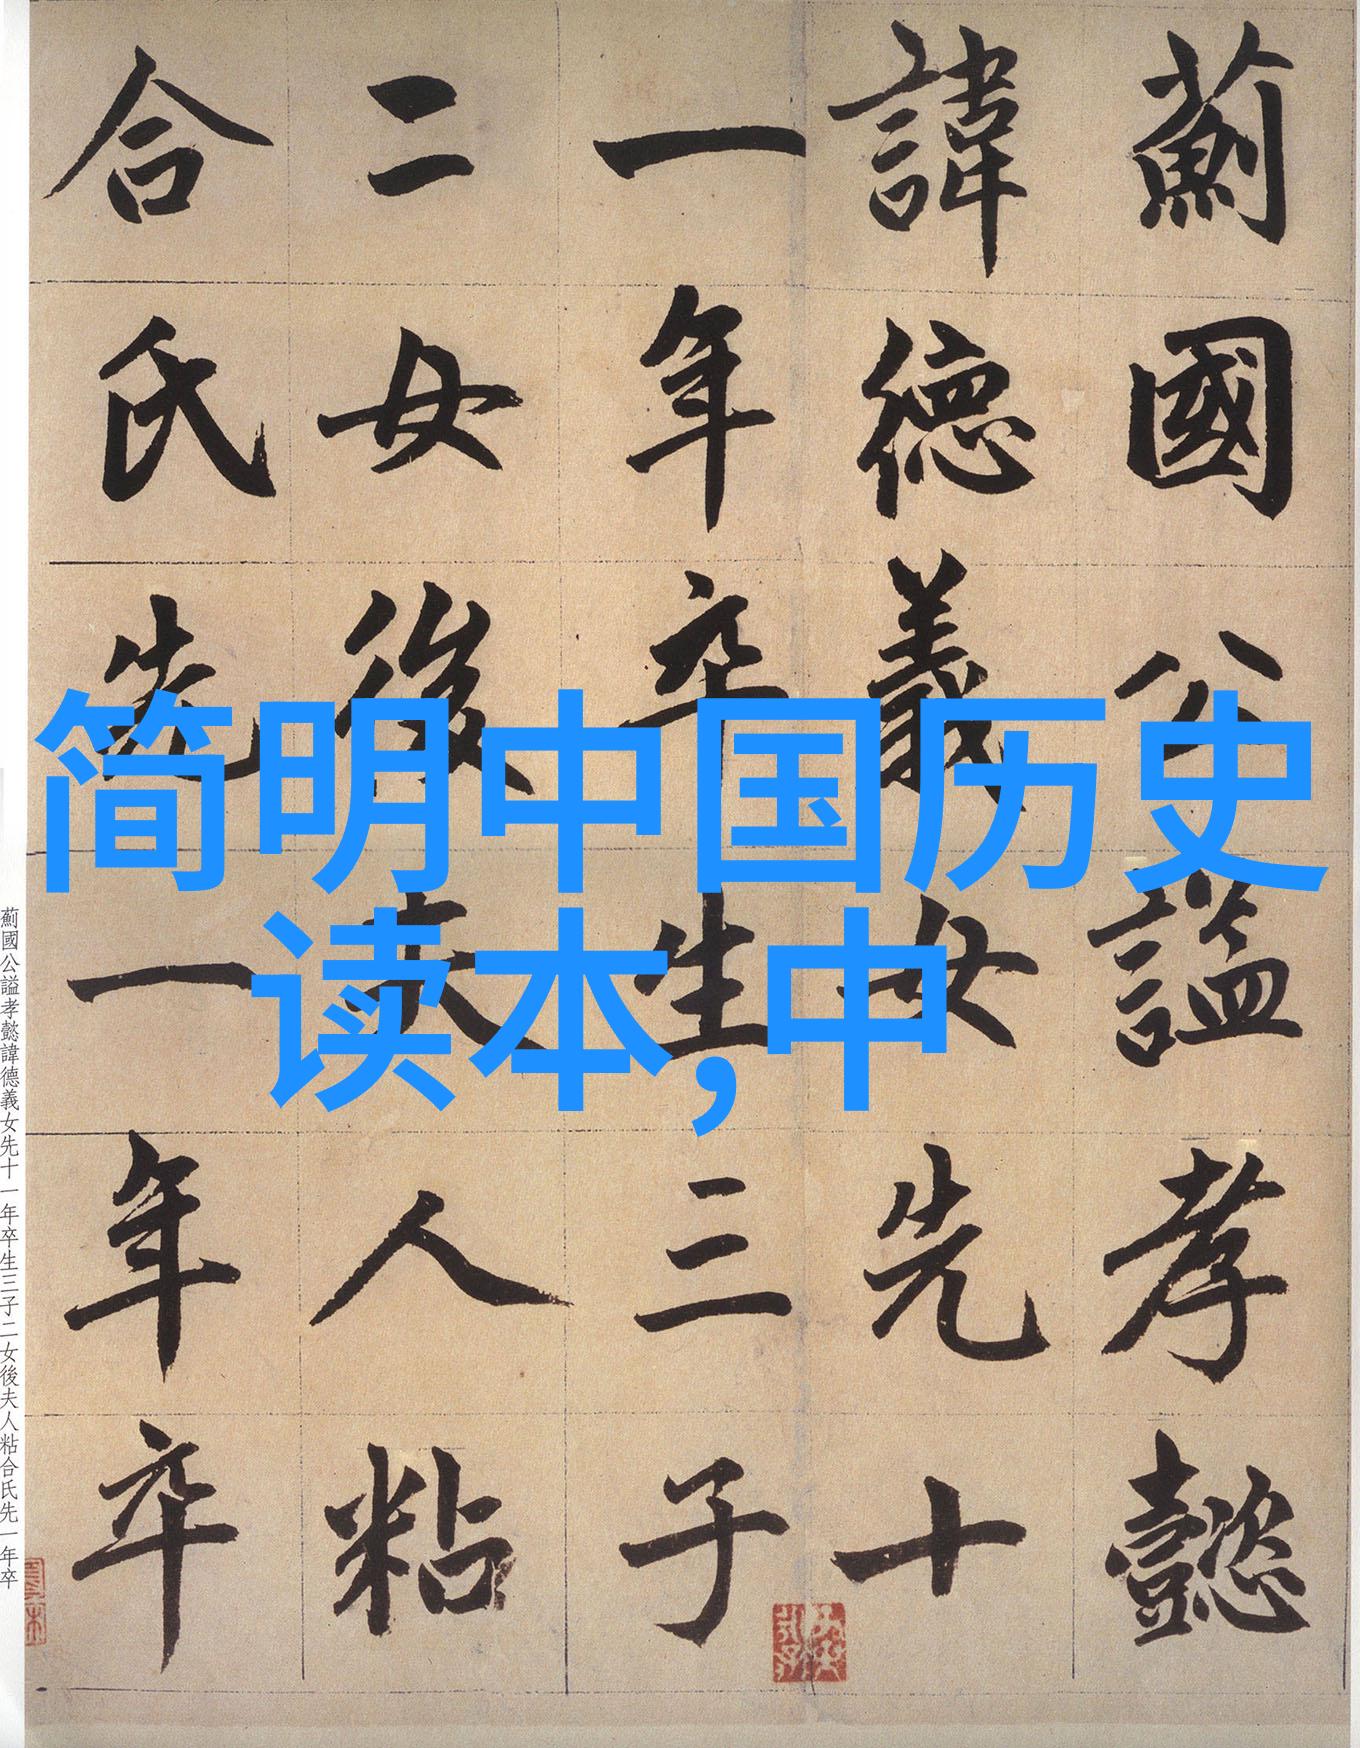 薊國公謚孝懿
諱德義女先十
一年卒生三子
二女後夫人粘
合氏先一年卒
简明中国历史
读本,中
薊國公謚孝懿諱德義女先十一年卒生三子二女後夫人粘合氏先一年卒